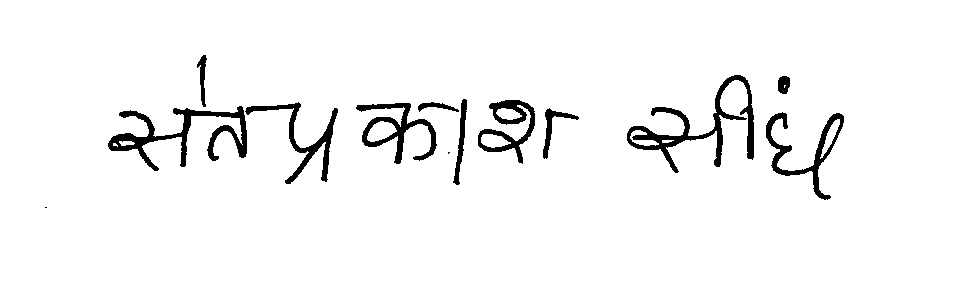 संतप्रकाश सीधं